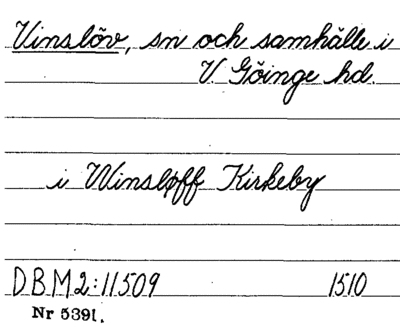 Vinslöv, sn och samhälle i
V. Göinge hd.
i Winsløff Kirkeby
D.B.M2:11509 1510
Nr 5391.